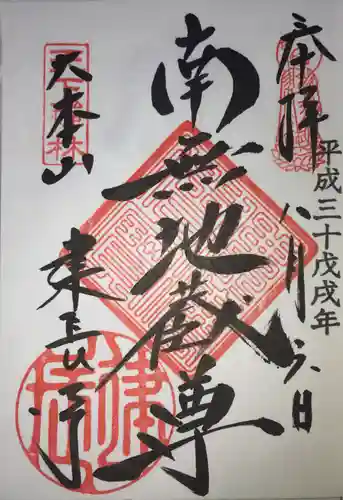 奉拝
平成三十戊戌年
八月六日
南無地蔵尊
大本山
建長寺